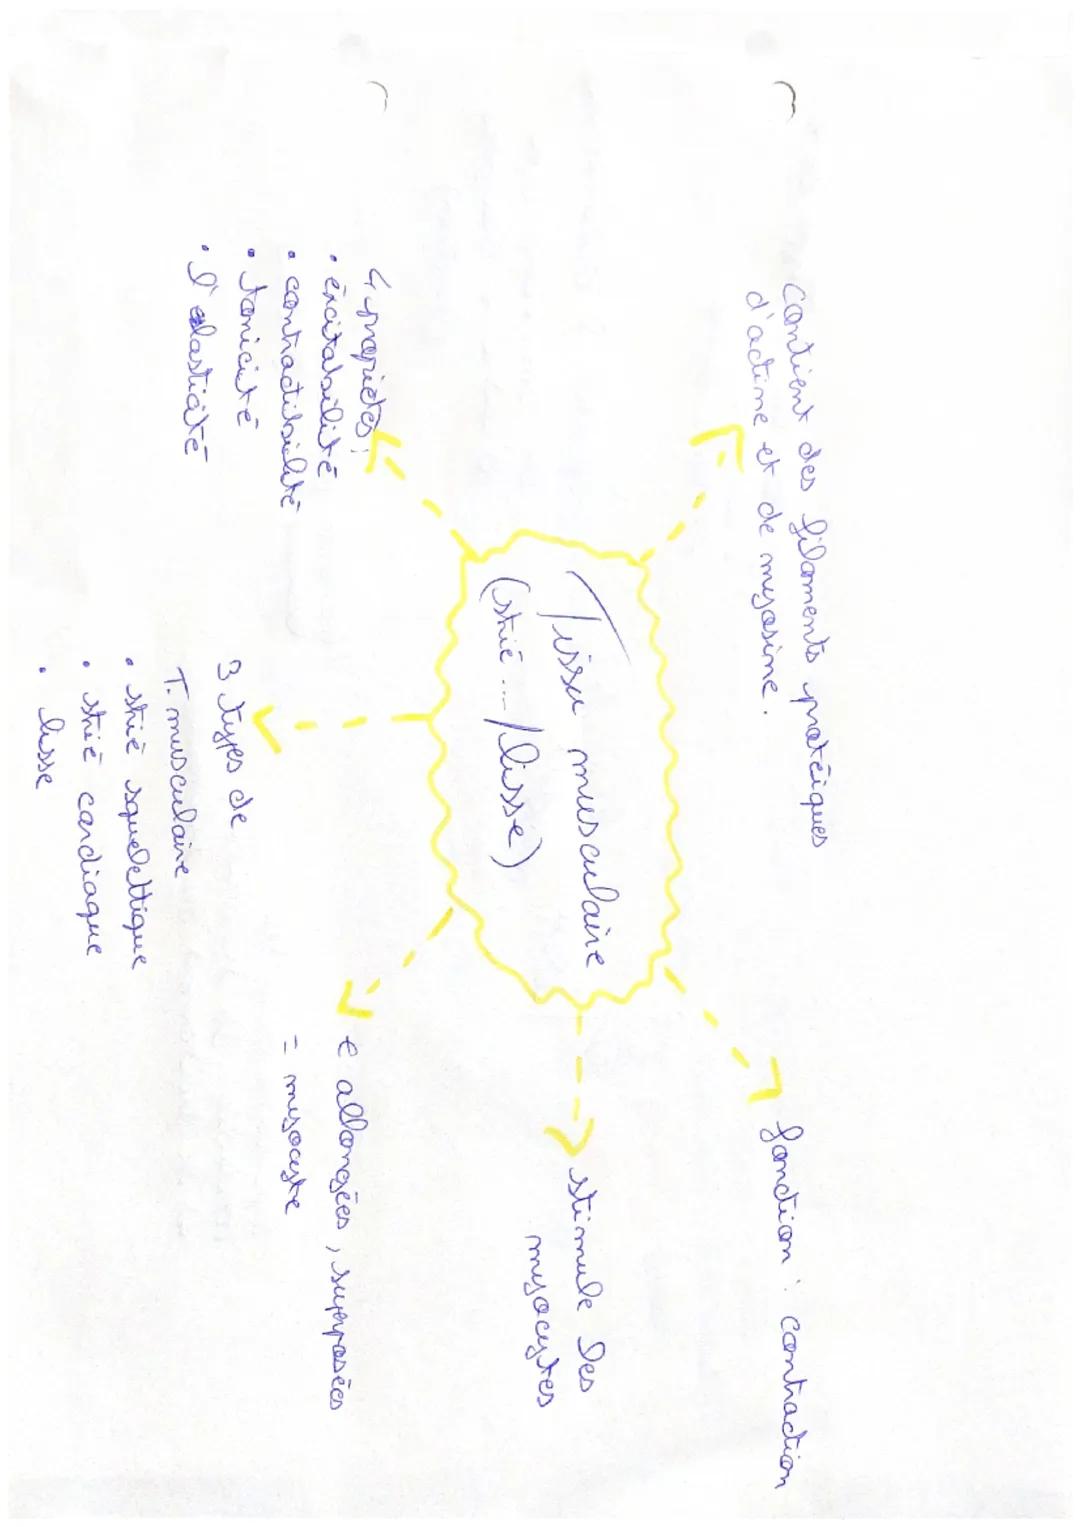 Contient des filaments protéiques
d'actine et de myosine.
fonction : contraction
Tissu musculaire
(strié ... / lisse)
stimule les
myocytes
4 propriétés :
• éxcitabilité
• contractibilité
• tonicité
• l'elasticité
3 types de
T. musculaire
• strié squelettique
• strié cardiaque
• lisse
allongées, superposées
= myocyte